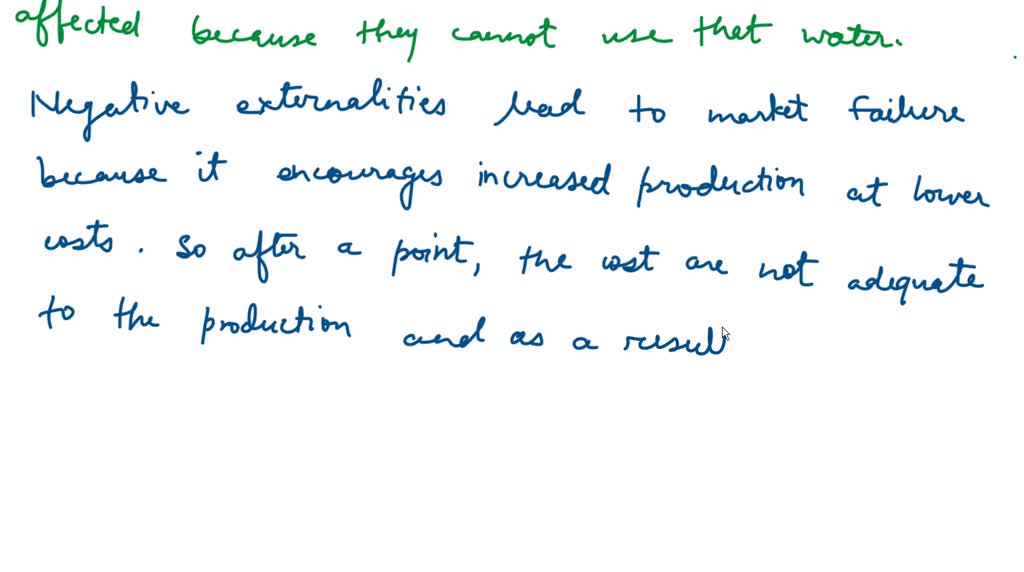 affected because they cannot use that water.
Negative externalities lead to market failure
because it encourages increased production at lower
costs. So after a point, the cost are not adequate
to the production and as a resul